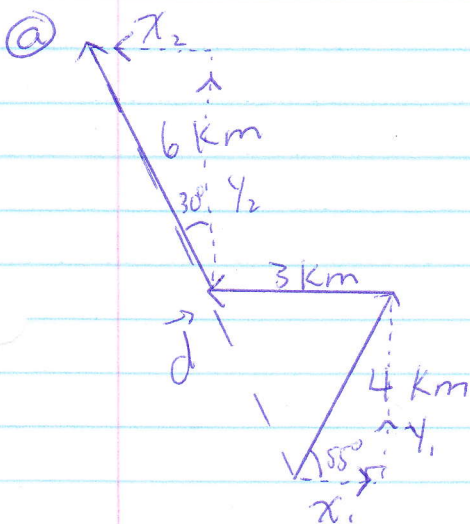 ⓐ
x₂
6 km
30° y₂
3 km
d⃗
4 km
55° y₁
x₁